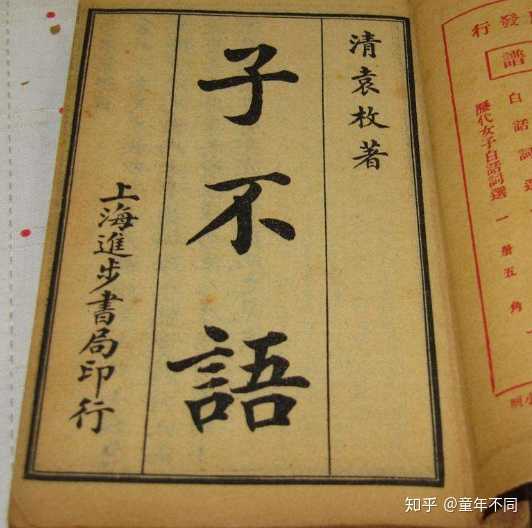 清袁枚著
子不語
上海進步書局印行
發
行
譜
白話詞選
歷代女子白話詞選一冊五角
知乎 @童年不同